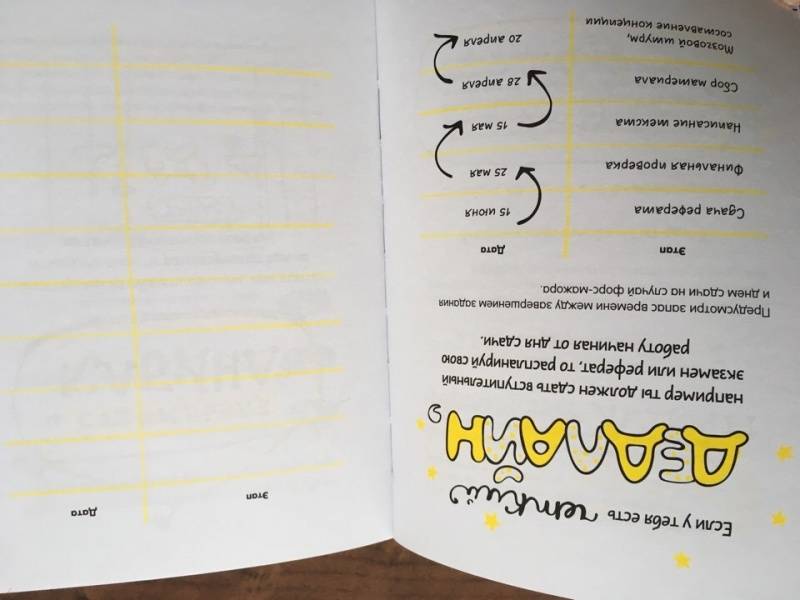 Если у тебя есть четкий
ДЕДЛАЙН,
например ты должен сдать вступительный
экзамен или реферат, то распланируй свою
работу начиная от дня сдачи.
Предусмотри запас времени между завершением задания
и днем сдачи на случай форс-мажора.
Этап Дата
Сдача реферата 15 июня
Финальная проверка 25 мая
Написание текста 15 мая
Сбор материала 28 апреля
Мозговой штурм, 20 апреля
составление концепции
Этап Дата